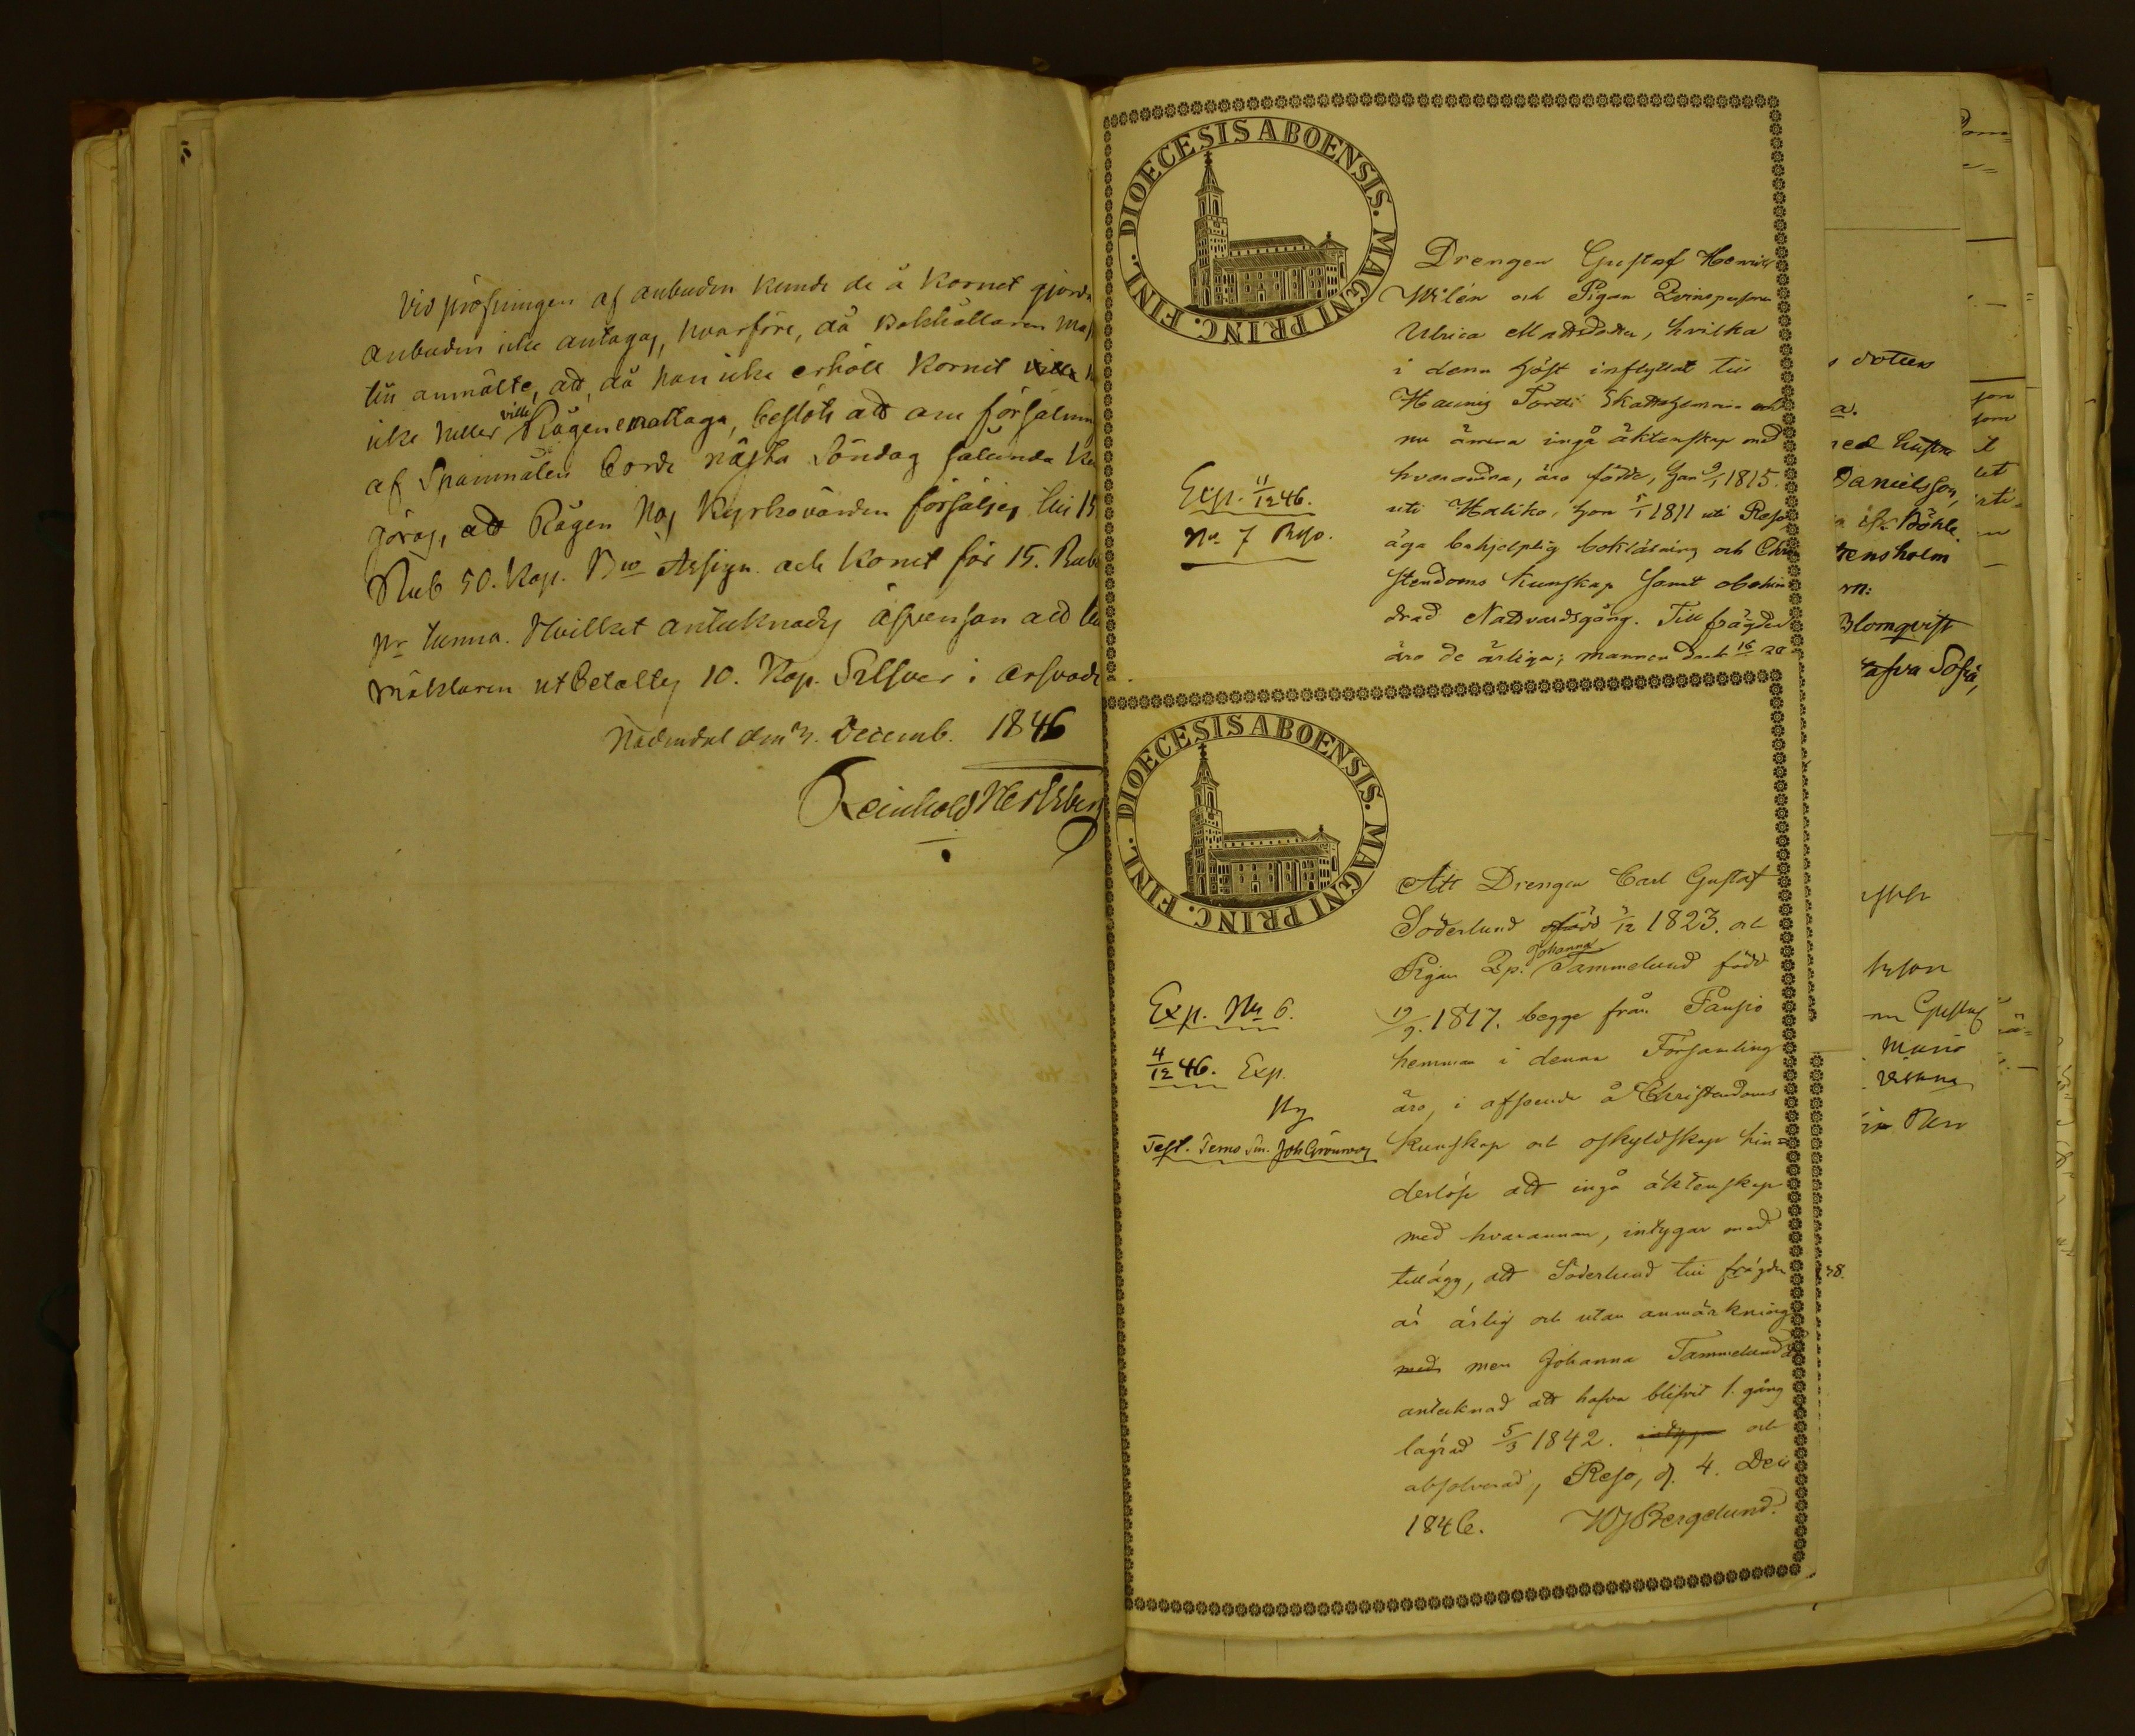 Vid pröfningen af anbuden kunde de å Kornet gjorda
anbuden icke antagas, hvarföre, då Bokhållaren
till anmälte, att, då han icke erhöll Kornet
icke heller ville Rågen emottaga, beslöts att
af Spanmålen borde nästa Söndag sålunda
göras, att Rågen hos Kyrkovärden försäljes till 15
Rub 50. Kop. Bco Assign. och Kornet för 15. Rub
pr tunna. Hvilket antecknades äfvensom att
Mäklaren utbetaltes 10. Kop. Silfver i arfvode
Nådendal den 3. Decemb. 1846
Reinhold Hertzberg
DIOECESIS ABOENSIS. MAGNI PRINC. FINL.
Drengen Gustaf Henric
Wilén och Pigan Qvinspersonen
Ulrica Mattsdotter, hvilka
i denna höst inflyttat till
Haunis Tortti Skattehemman och
nu ämna ingå äktenskap med
hvarandra, äro födde, han 9/1 1815.
uti Haliko, hon 5/1 1811 uti Reso,
äga behjelplig bokläsning och Chri
stendoms kunskap samt obehin
drad Nattvardsgång. Till frägden
äro de ärliga; mannen dock 16
Exp. 11/12 46.
No 7 Reso.
DIOECESIS ABOENSIS. MAGNI PRINC. FINL.
Att Drengen Carl Gustaf
Söderlund född 3/12 1823. och
Pigan Qp. Johanna Tammelund född
19/9. 1817. begge från Pansio
hemman i denna Församling
äro, i afseende å Christendoms
kunskap och oskyldskap hin=
derlöse att ingå äktenskap
med hvarannan, intygar med
tillägg, att Söderlund till frägden
är ärlig och utan anmärkning
med men Johanna Tammelund
antecknad att hafva blifvit 1. gång
lägrad 5/3 1842. intygar och
absolverad, Reso, d. 4. Dec
1846. WJBergelund.
Exp. No 6.
4/12 46. Exp.
Test.
dotter
a.
med hustru
Danielsson,
Böhle.
tensholm
Blomqvist
tafva Sofia,
Gustaf
Maria
48.